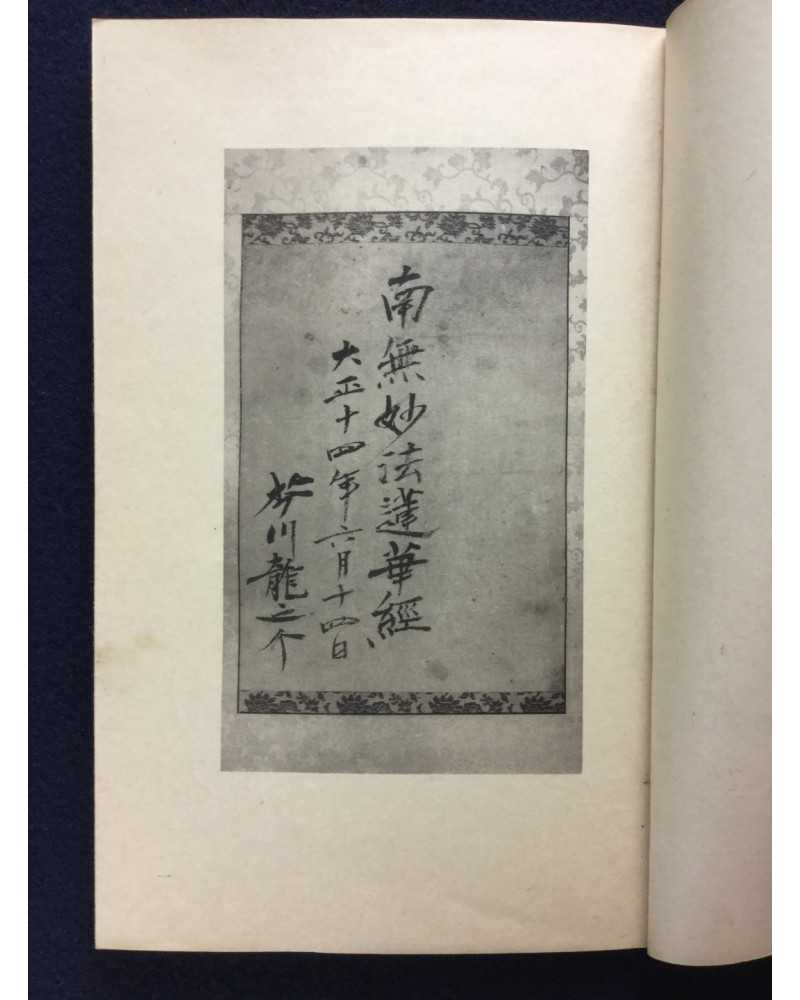 南無妙法蓮華經
大正十四年六月十四日
芥川龍之介